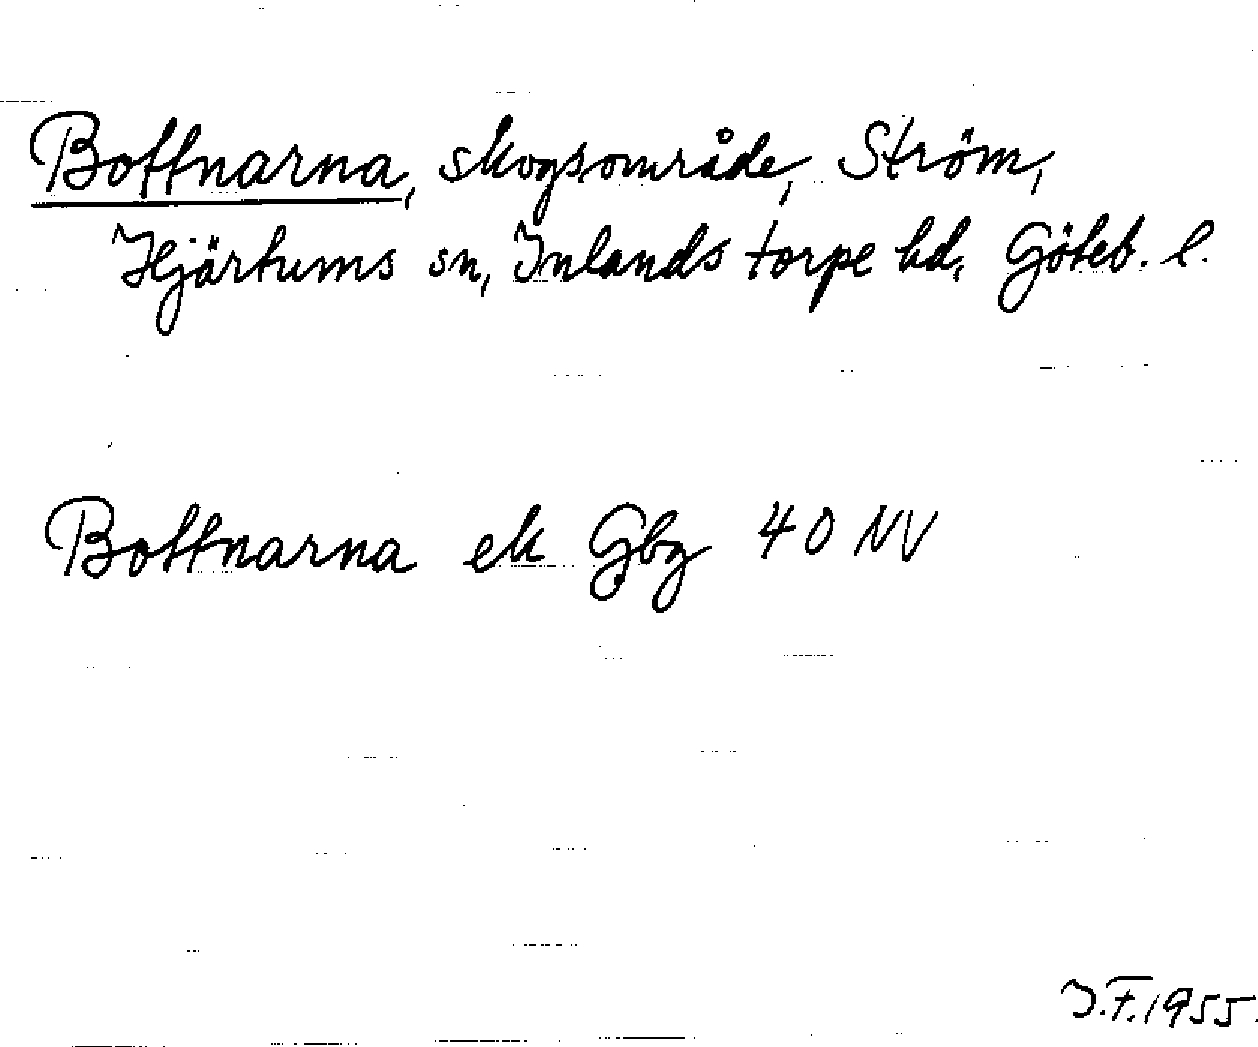 Boffnarna, skogsområde, Ström,
Hjärtums sn, Inlands torpe hd, Göteb. l.
Boffnarna ek Gbg 40 NV
I.F. 1955.